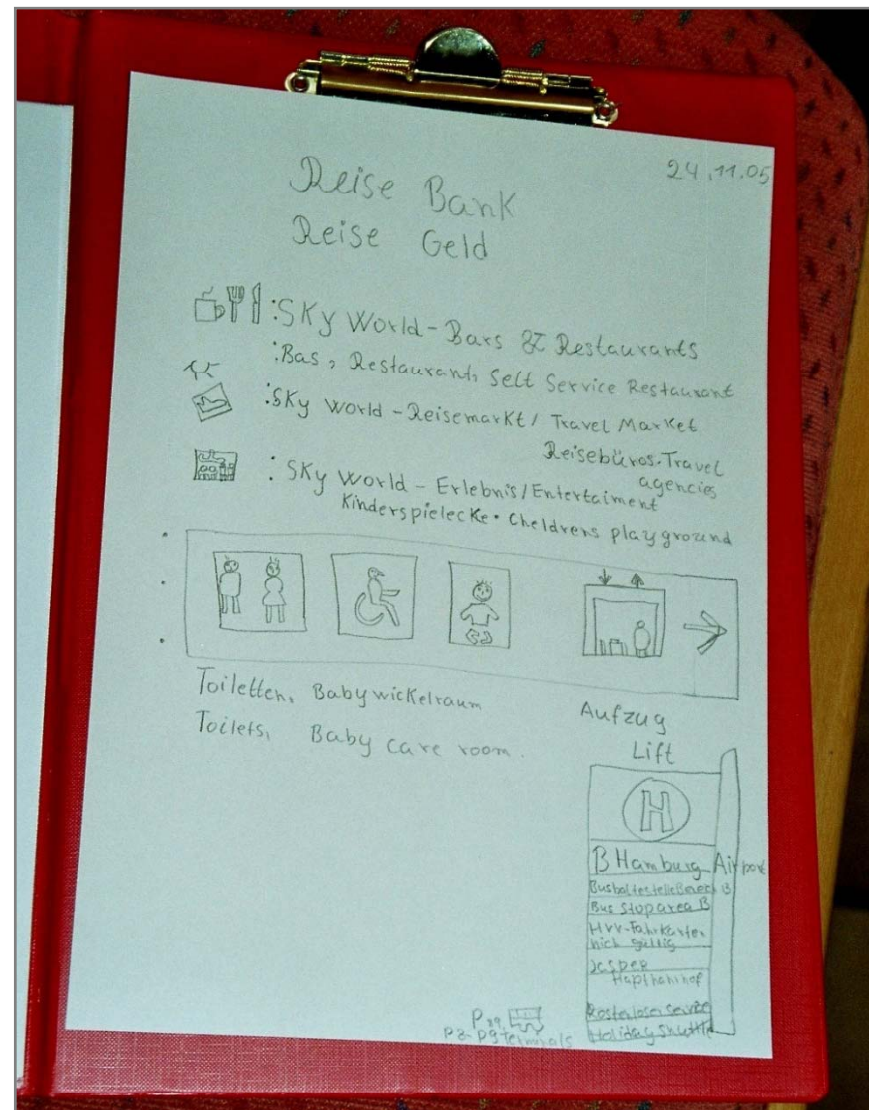 24.11.05
Reise Bank
Reise Geld
:SKy World - Bars & Restaurants
:Bas, Restaurant, Selt Service Restaurant
:SKy World - Reisemarkt / Travel Market
Reisebüros. Travel
agencies
: SKy World - Erlebnis / Entertaiment
Kinderspielecke · Cheldrens playground
Toiletten, Babywickelraum
Toilets, Baby care room.
Aufzug
Lift
H
B Hamburg Airport
Bus Stop area B
HVV-Fahrkarten
nich gültig
Jasper
Hapthanhof
Kostenloser Service
Holiday Shuttle
P8-P9 Terminals